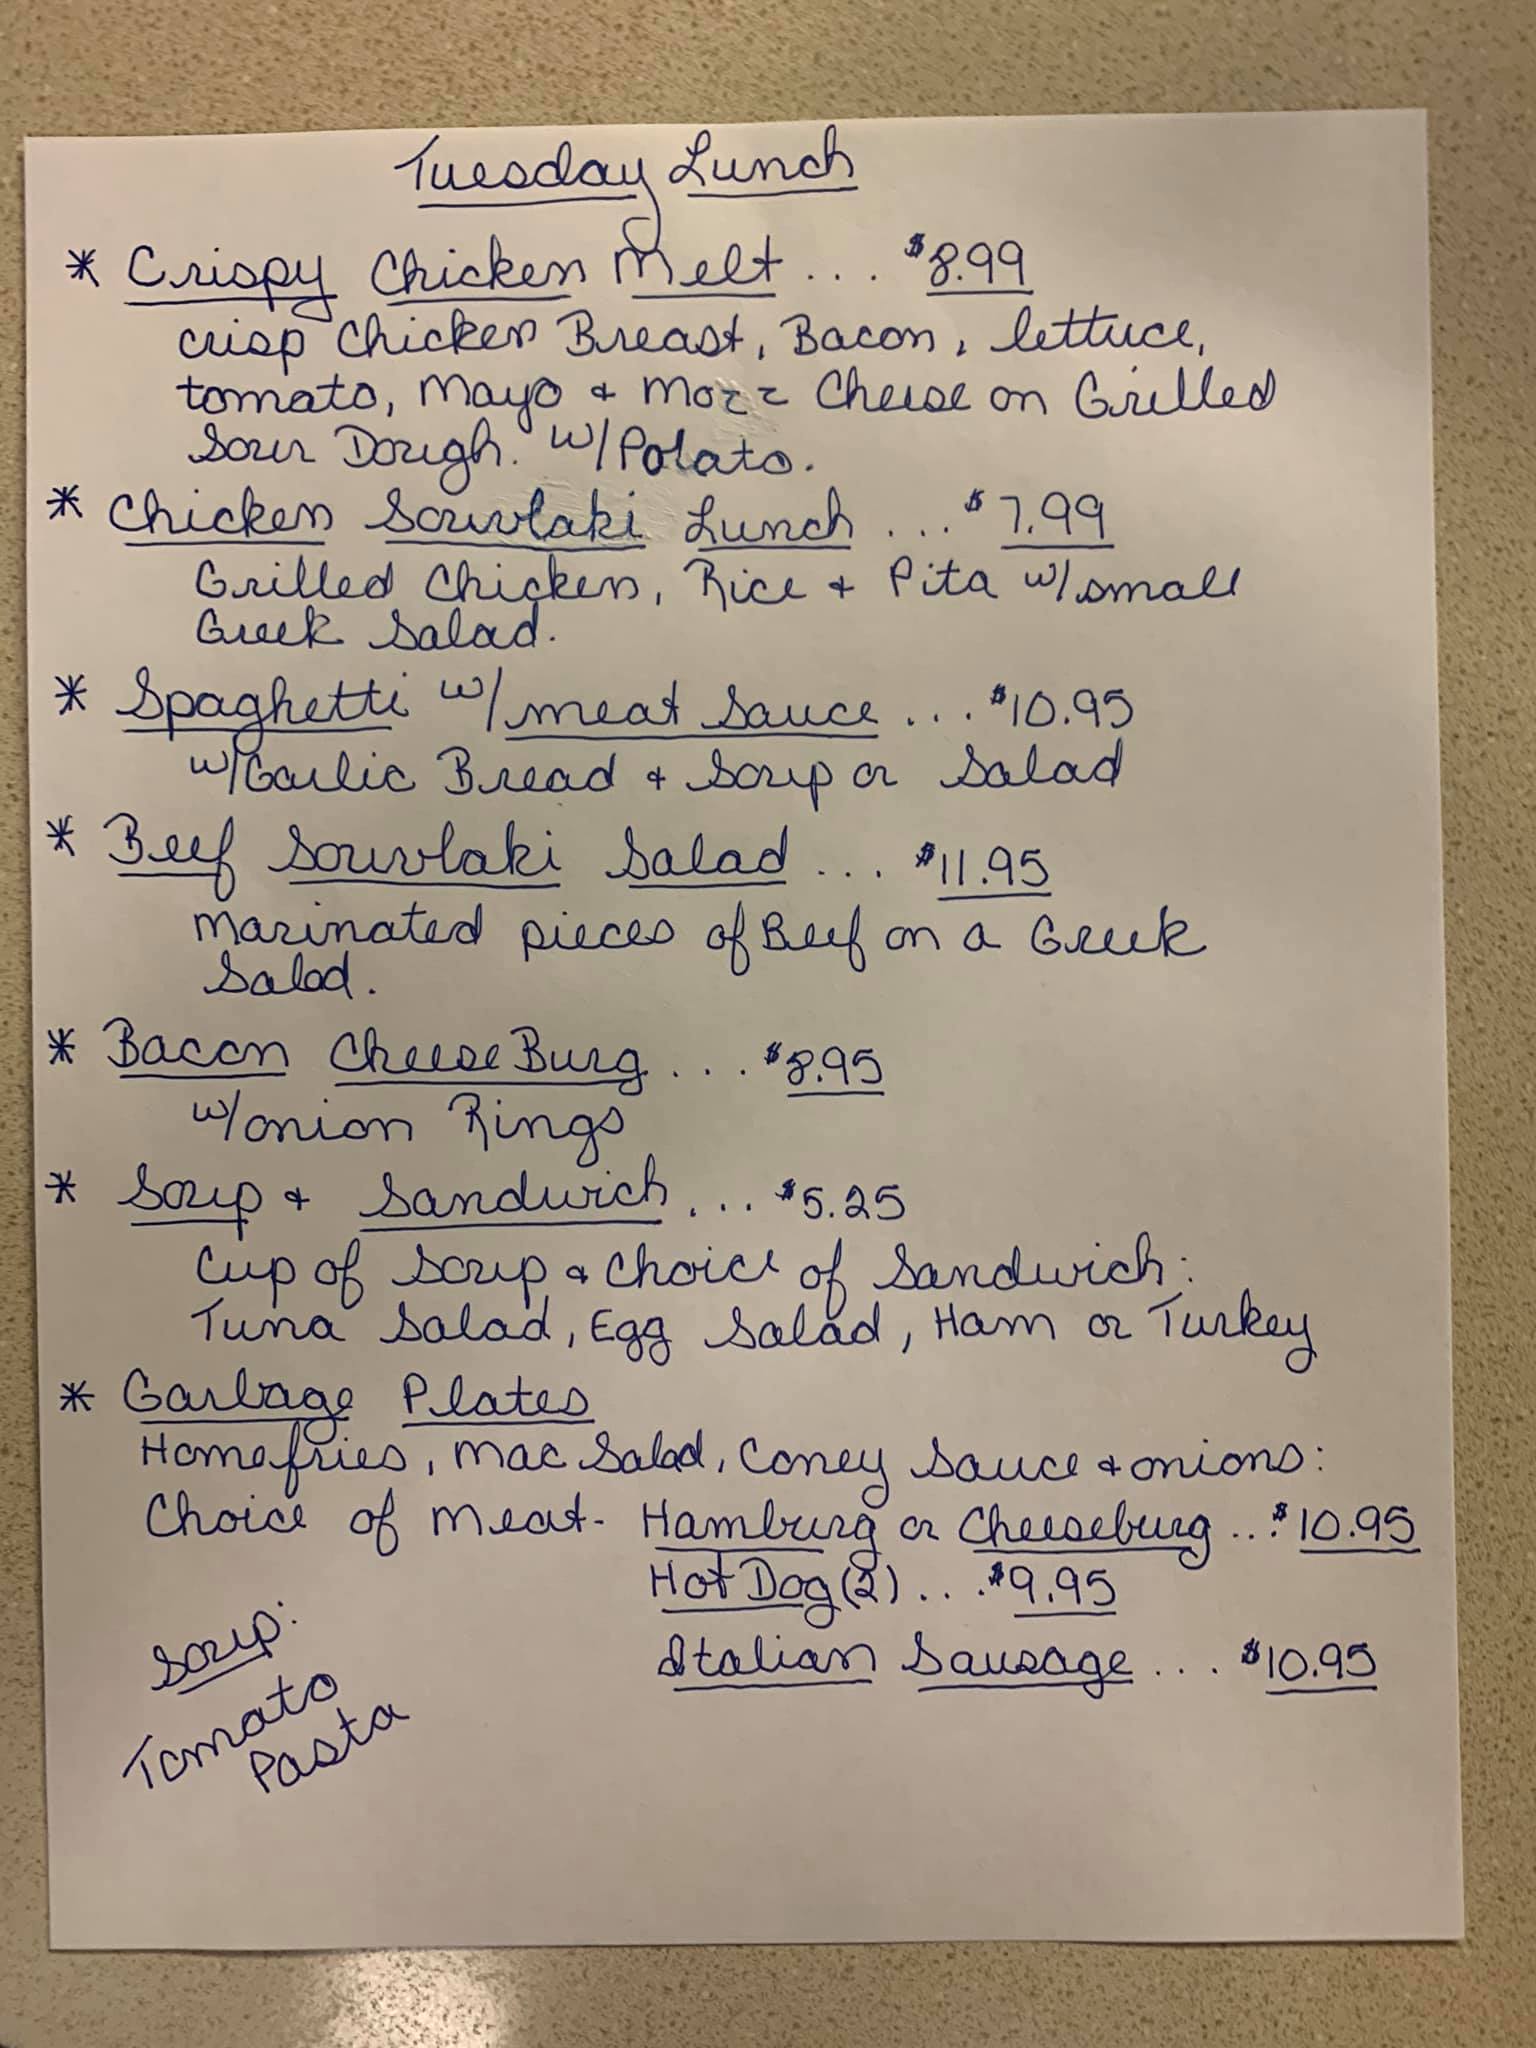 Tuesday Lunch
* Crispy Chicken Melt... $8.99
crisp Chicken Breast, Bacon, lettuce,
tomato, Mayo & Mozz Cheese on Grilled
Sour Dough. w/Potato.
* Chicken Souvlaki Lunch ... $7.99
Grilled Chicken, Rice & Pita w/small
Greek Salad.
* Spaghetti w/meat Sauce ... $10.95
w/Garlic Bread & Soup or Salad
* Beef Souvlaki Salad ... $11.95
Marinated pieces of Beef on a Greek
Salad.
* Bacon CheeseBurg ... $8.95
w/onion Rings
* Soup & Sandwich ... $5.25
Cup of Soup & Choice of Sandwich:
Tuna Salad, Egg Salad, Ham or Turkey
* Garbage Plates
Homefries, Mac Salad, Coney Sauce & onions:
Choice of Meat- Hamburg or Cheeseburg ... $10.95
Hot Dog (2) ... $9.95
Italian Sausage ... $10.95
Soup:
Tomato
Pasta